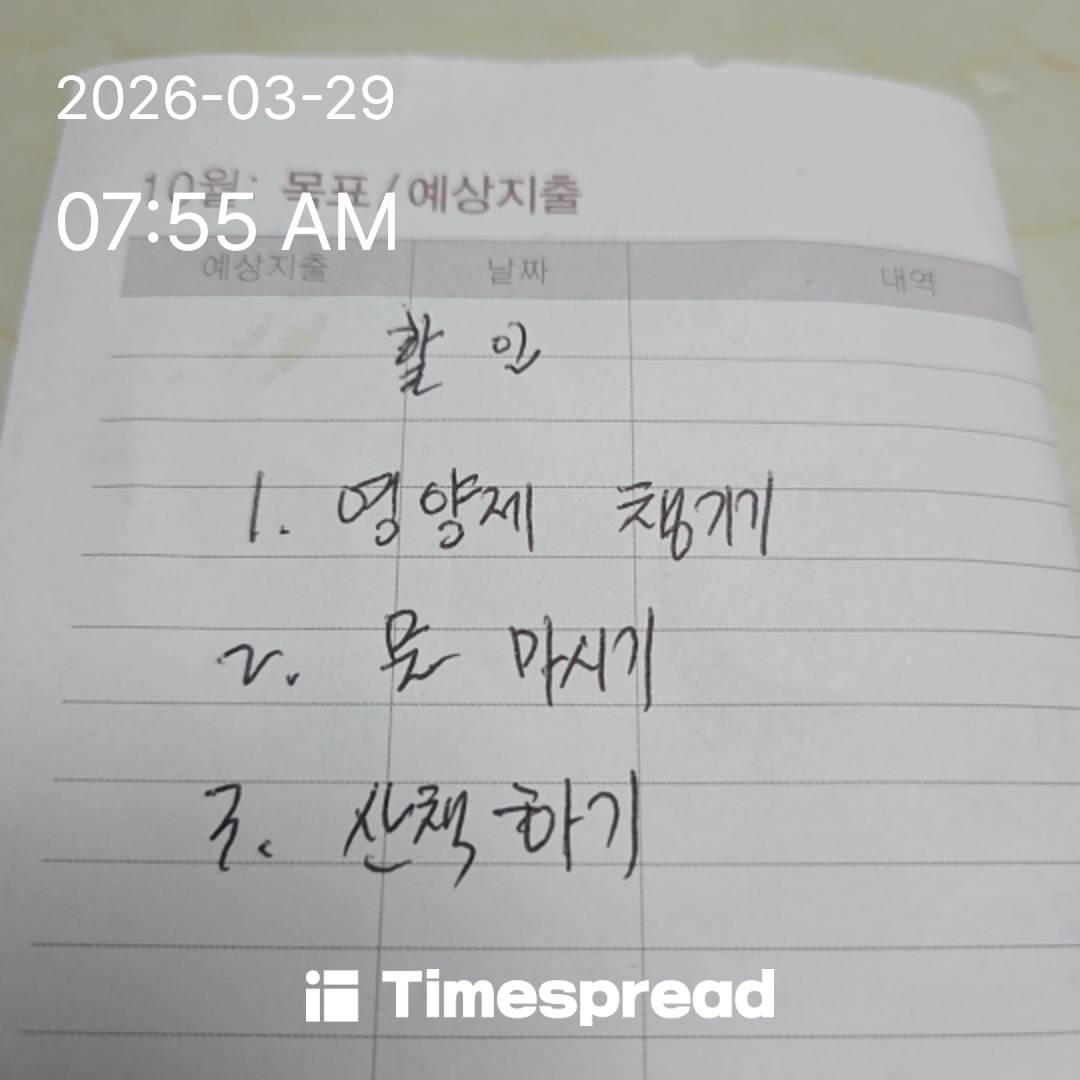 2026-03-29
10월: 목표 / 예상지출
07:55 AM
예상지출 날짜 내역
할 인
1. 영양제 챙기기
2. 물 마시기
3. 산책하기
Timespread